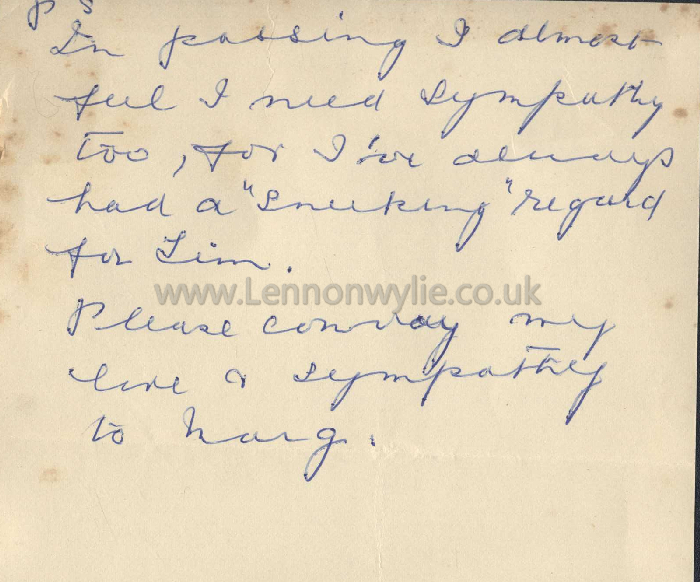 P S
In passing I almost
feel I need sympathy
too, for I've always
had a "sneeking" regard
for Jim.
www.Lennonwylie.co.uk
Please convay my
love & sympathy
to Marg.